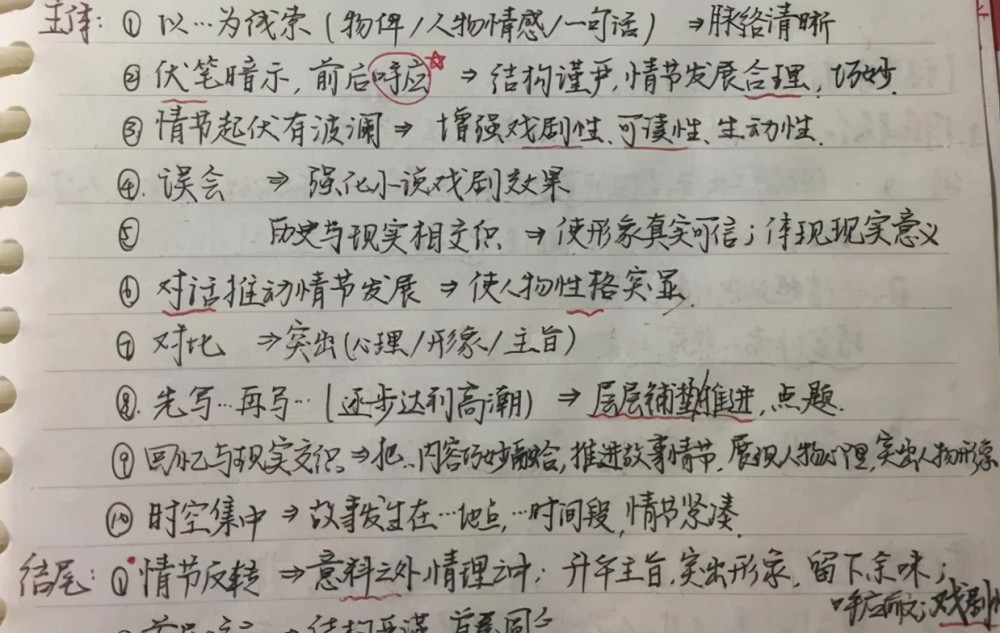 主体：① 以…为线索（物件/人物情感/一句话） ⇒脉络清晰
② 伏笔暗示，前后呼应☆ ⇒ 结构谨严，情节发展合理，巧妙.
③ 情节起伏有波澜 ⇒ 增强戏剧性、可读性、生动性.
④. 误会 ⇒ 强化小说戏剧效果
⑤ 历史与现实相交织 ⇒ 使形象真实可信；体现现实意义
⑥ 对话推动情节发展 ⇒ 使人物性格突显.
⑦ 对比 ⇒突出(心理/形象/主旨)
⑧. 先写…再写…(逐步达到高潮) ⇒ 层层铺垫/推进，点题.
⑨ 回忆与现实交织⇒把…内容巧妙融合，推进故事情节，展现人物心理，突出人物形象
⑩ 时空集中 ⇒ 故事发生在…地点，…时间段，情节紧凑.
结尾：① 情节反转 ⇒意料之外，情理之中；升华主旨，突出形象，留下余味；
呼应前文；戏剧
⇒结构严谨